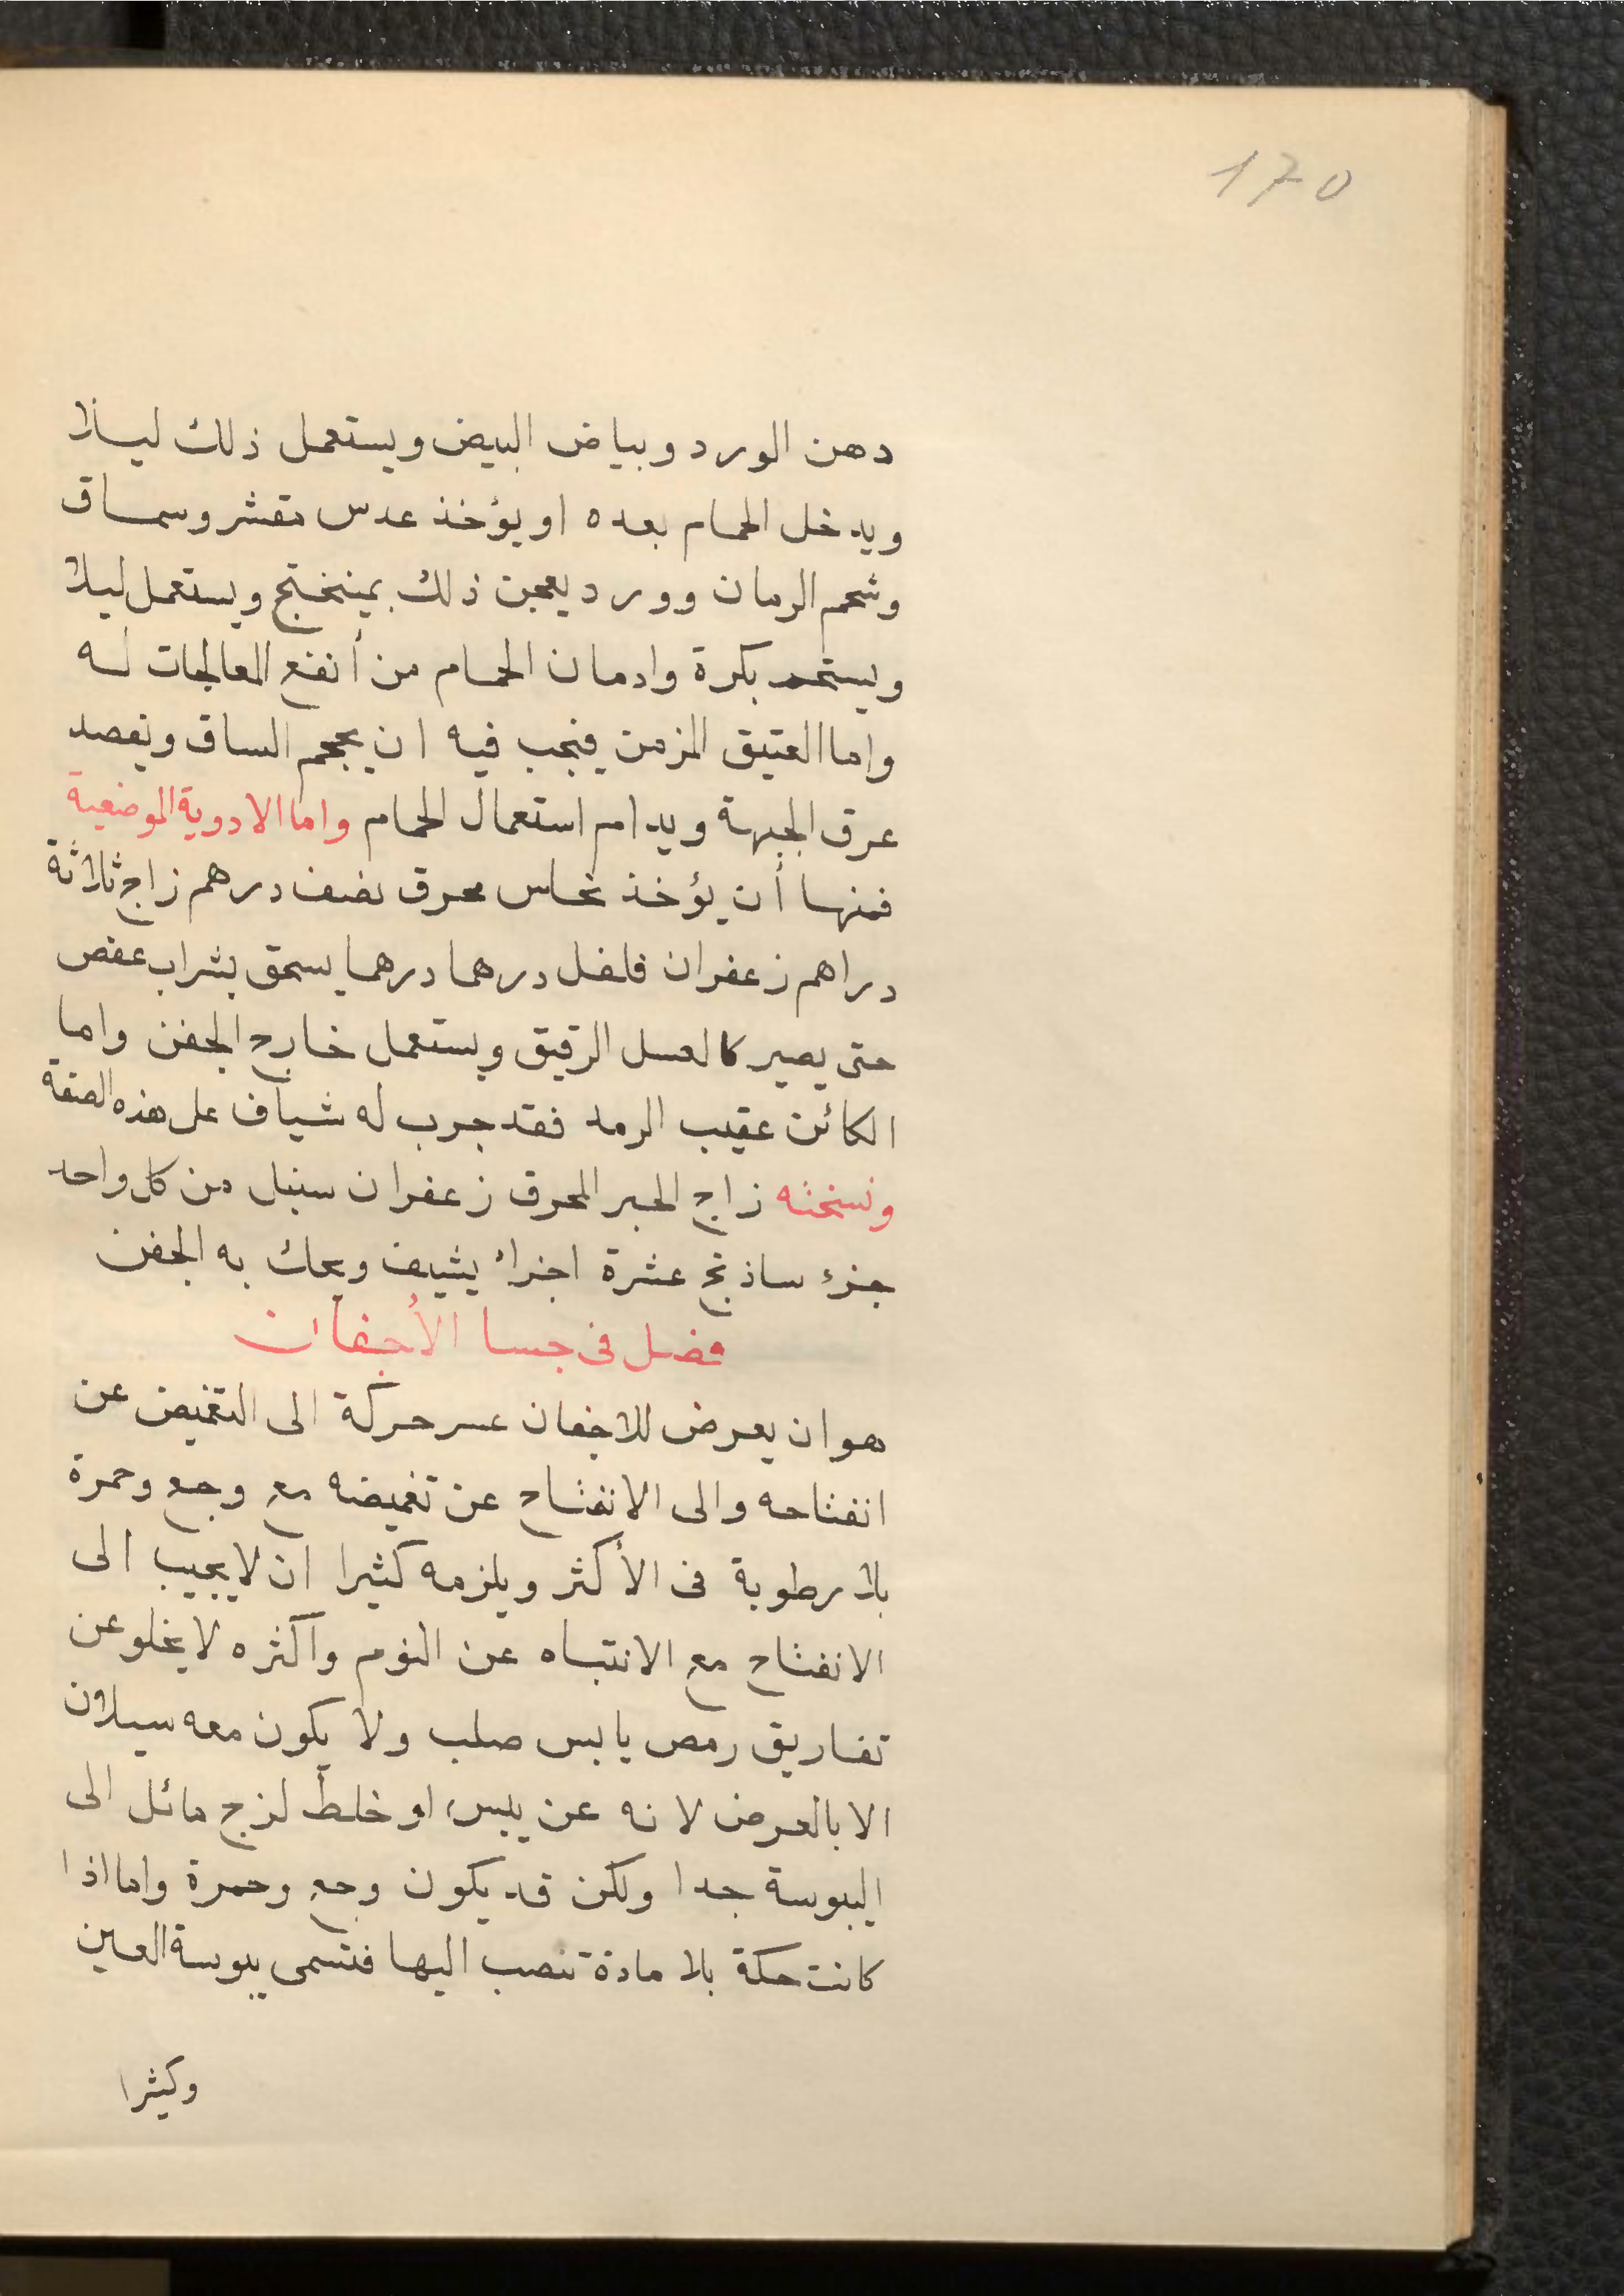 170
دهن الورد وبياض البيض ويستعمل ذلك ليلا
ويدخل الحمام بعده او يؤخذ عدس مقشر وسماق
وشحم الرمان وورد يعجن ذلك بميبختج ويستعمل ليلا
ويستحم بكرة وادمان الحمام من أنفع المعالجات له
واما العتيق المزمن فيجب فيه ان يحجم الساق ويفصد
عرق الجبهة ويدام استعمال الحمام واما الادوية الموضعية
فمنها أن يؤخذ نحاس محرق نصف درهم زاج ثلاثة
دراهم زعفران فلفل درهما درهما يسحق بشراب عفص
حتى يصير كالعسل الرقيق ويستعمل خارج الجفن واما
الكائن عقيب الرمد فقد جرب له شياف على هذه الصفة
ونسخته زاج الحبر المحرق زعفران سنبل من كل واحد
جزء ساذنج عشرة اجزاء يشيف ويحك به الجفن
فصل فى جسا الأجفان
هو ان يعرض للاجفان عسر حركة الى التغميض عن
انفتاحه والى الانفتاح عن تغميضه مع وجع وحمرة
بلا رطوبة فى الأكثر ويلزمه كثيرا ان لا يجيب الى
الانفتاح مع الانتباه عن النوم واكثره لا يخلو عن
تفاريق رمص يابس صلب ولا يكون معه سيلان
الا بالعرض لانه عن يبس او خلط لزج مائل الى
اليبوسة جدا ولكن قد يكون وجع وحمرة واما اذا
كانت حكة بلا مادة تنصب اليها فتسمى يبوسة العين
وكثيرا